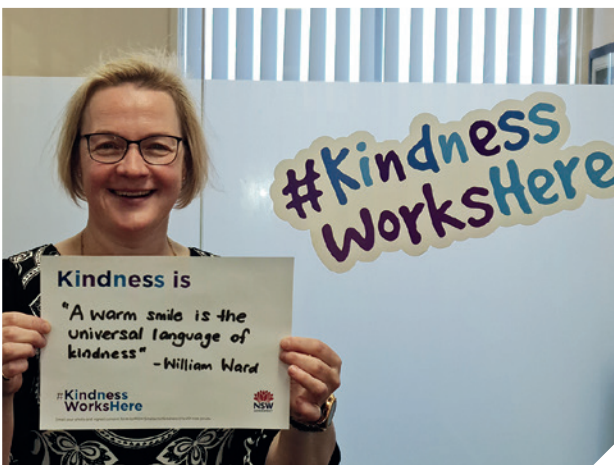 #Kindness
WorksHere
Kindness is
"A warm smile is the
universal language of
kindness"
-William Ward
#Kindness
WorksHere
NSW
GOVERNMENT